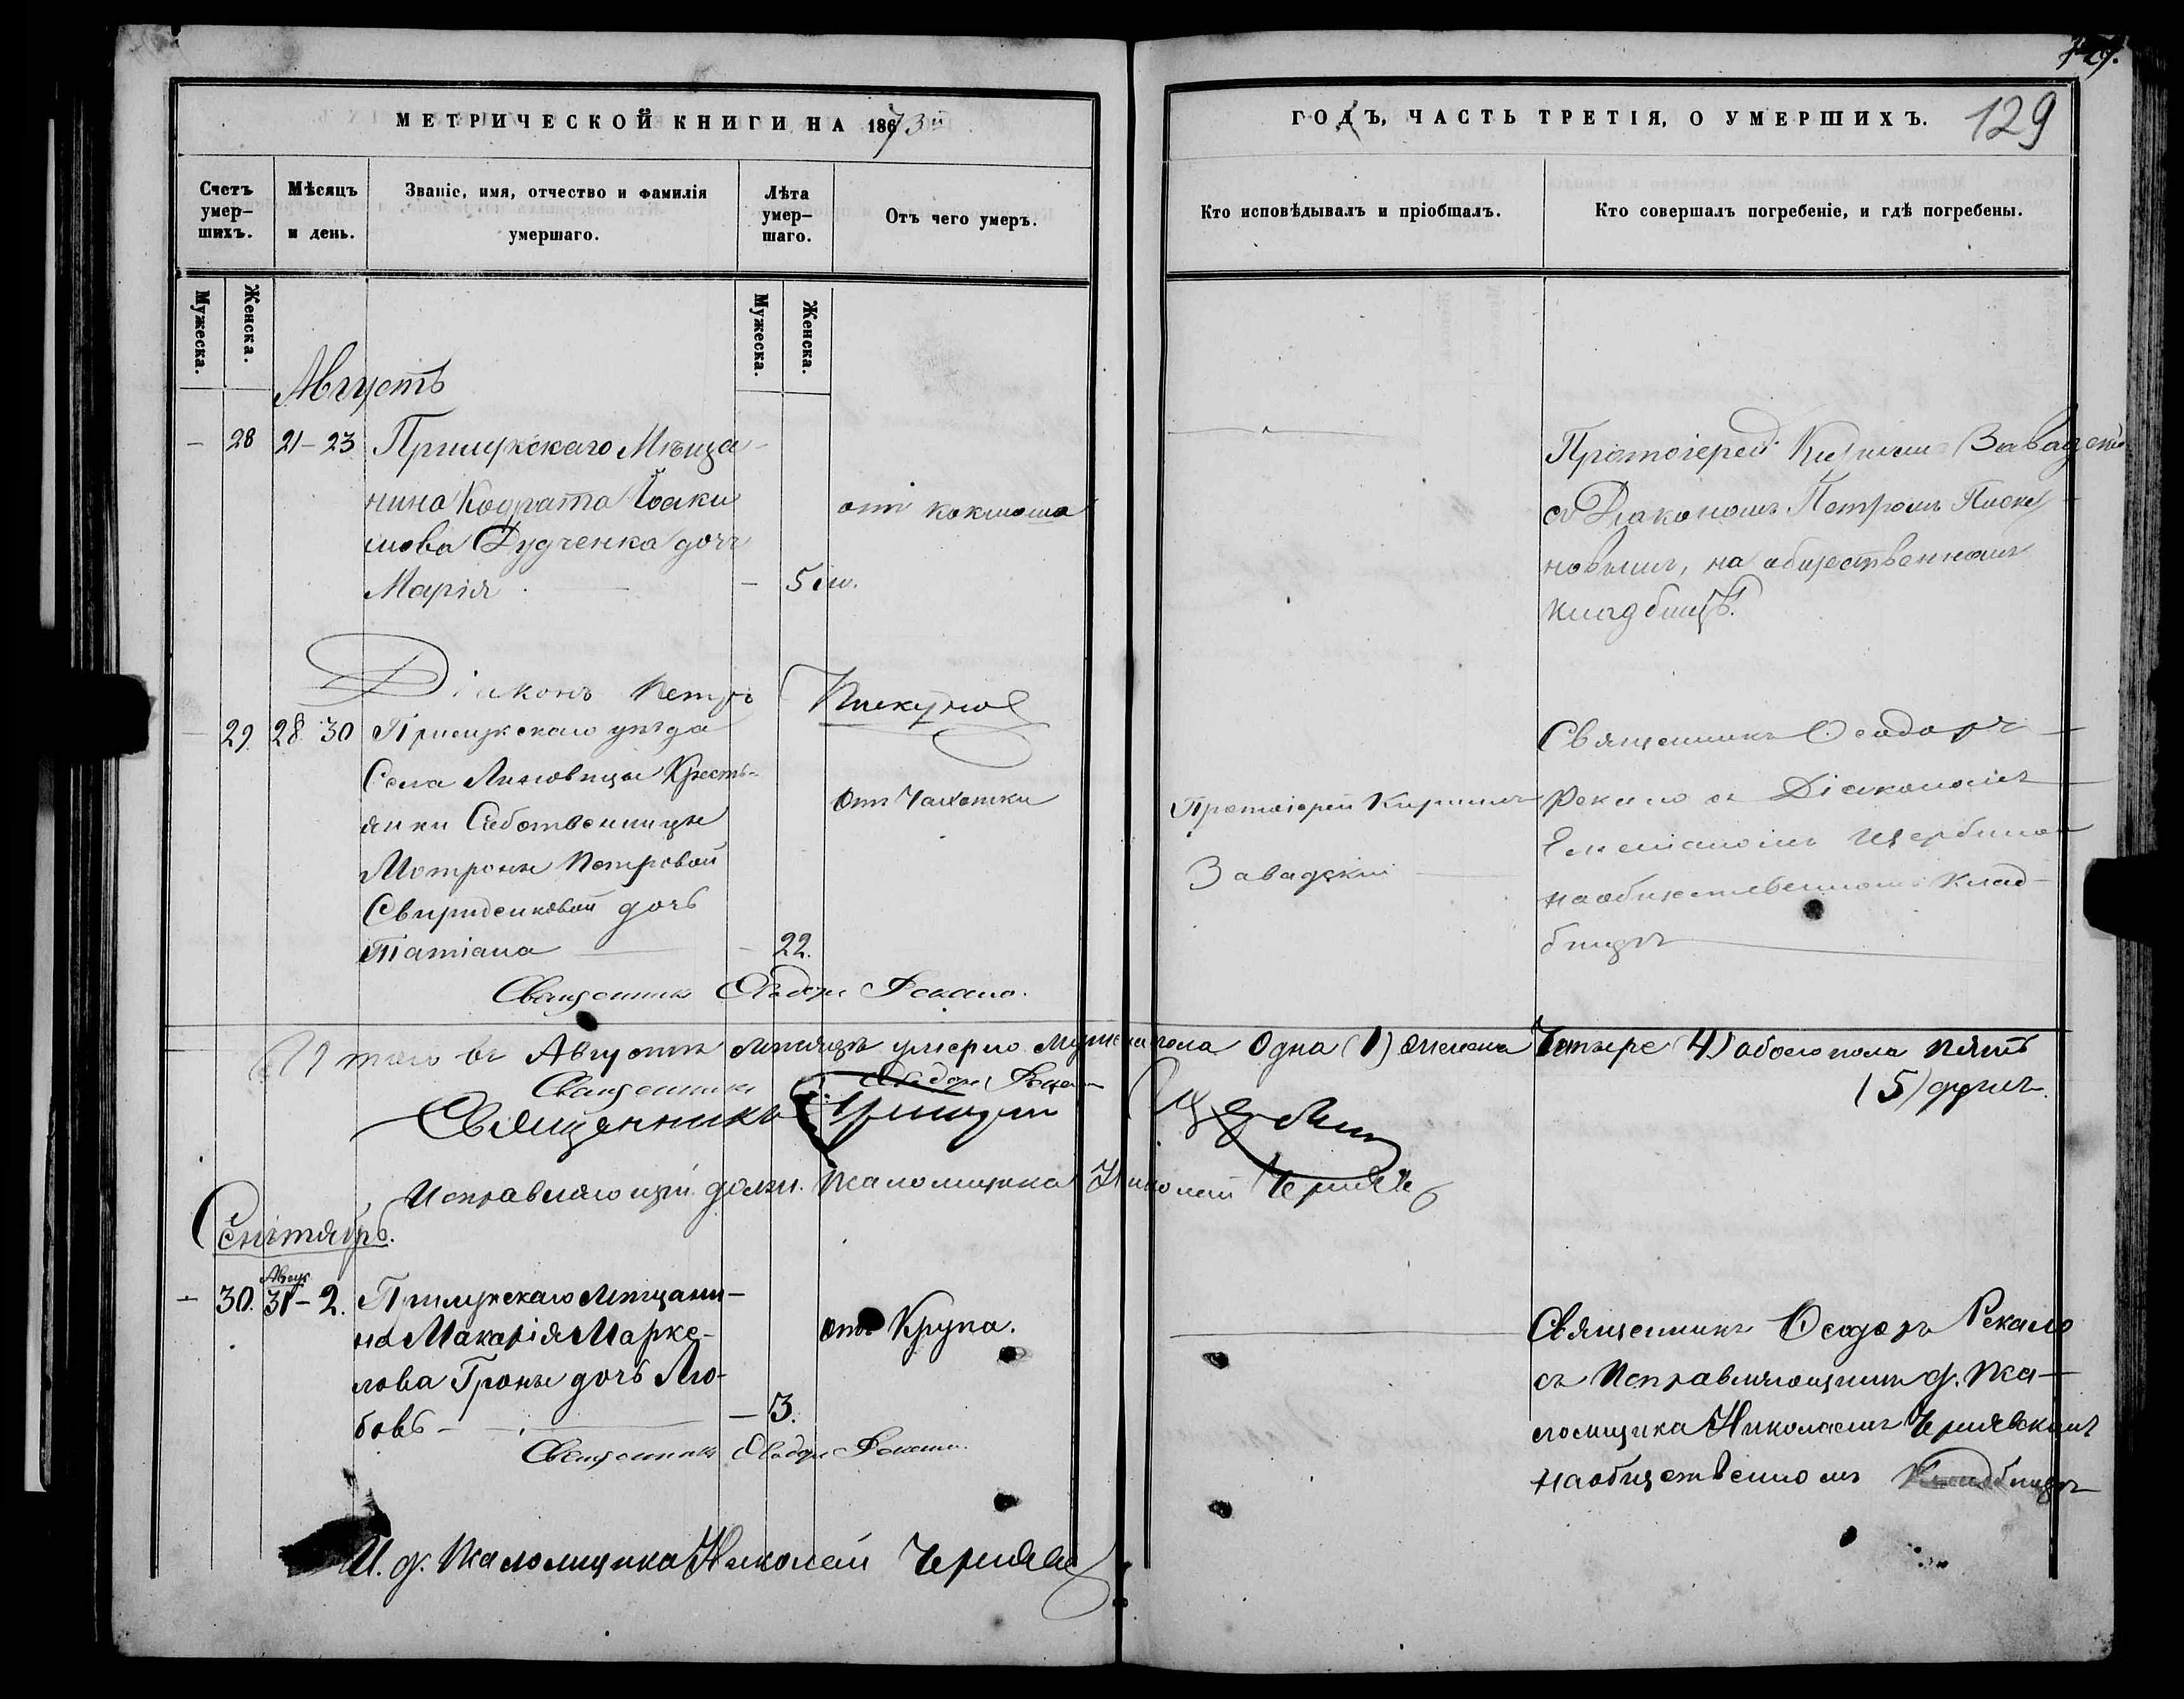 129
МЕТРИЧЕСКОЙ КНИГИ НА 1873й
ГОДЪ, ЧАСТЬ ТРЕТІЯ, О УМЕРШИХЪ.
129
Счетъ умер-шихъ.
Мѣсяцъ и день.
Званіе, имя, отчество и фамилія умершаго.
Лѣта умер-шаго.
Отъ чего умеръ.
Кто исповѣдывалъ и пріобщалъ.
Кто совершалъ погребеніе, и гдѣ погребены.
Мужеска.
Женска.
Мужеска.
Женска.
Августъ
— 28 21-23 Прилукскаго Мѣща-
нина Кодрата Іоаки
мова Дудченка дочь
Марія — 5 м.
от коклюша
Протоіерей Кириллъ Завадскій
съ Діакономъ Петромъ Писку
новымъ, на общественномъ
кладбищѣ.
Діаконъ Петръ Пискуновъ
29 28 30 Прилукскаго уѣзда
Села Линовицы Кресть-
янки Собственницы
Мотроны Петровой
Свириденковой дочь
Татіана — 22.
Отъ Чахотки
Протоіерей Кириллъ
Завадскій
Священникъ Ѳеодоръ
Рекало съ Діакономъ
Емеліаномъ Щербиною
на общественномъ Клад-
бищѣ
Священникъ Ѳеодоръ Рекало.
Итого въ Августѣ мѣсяцѣ умерло мужеска пола Одна (1) женска Четыре (4) обоего пола пять
(5) душъ.
Священникъ Ѳеодоръ Рекало
Священникъ Щербина
Исправляющій должн. Псаломщика Николай Чернявск
Сентябрь.
— 30. Авгус 31-2. Прилукскаго Мѣщани-
на Макарія Марке-
лова Гроны дочь Лю-
бовь — 3.
отъ Крупа.
Священникъ Ѳеодоръ Рекало
съ Исправляющимъ д. Пса-
ломщика Николаемъ Чернявскимъ
на общественномъ Кладбищѣ
Священникъ Ѳеодоръ Рекало.
И. д. Псаломщика Николай Чернявск